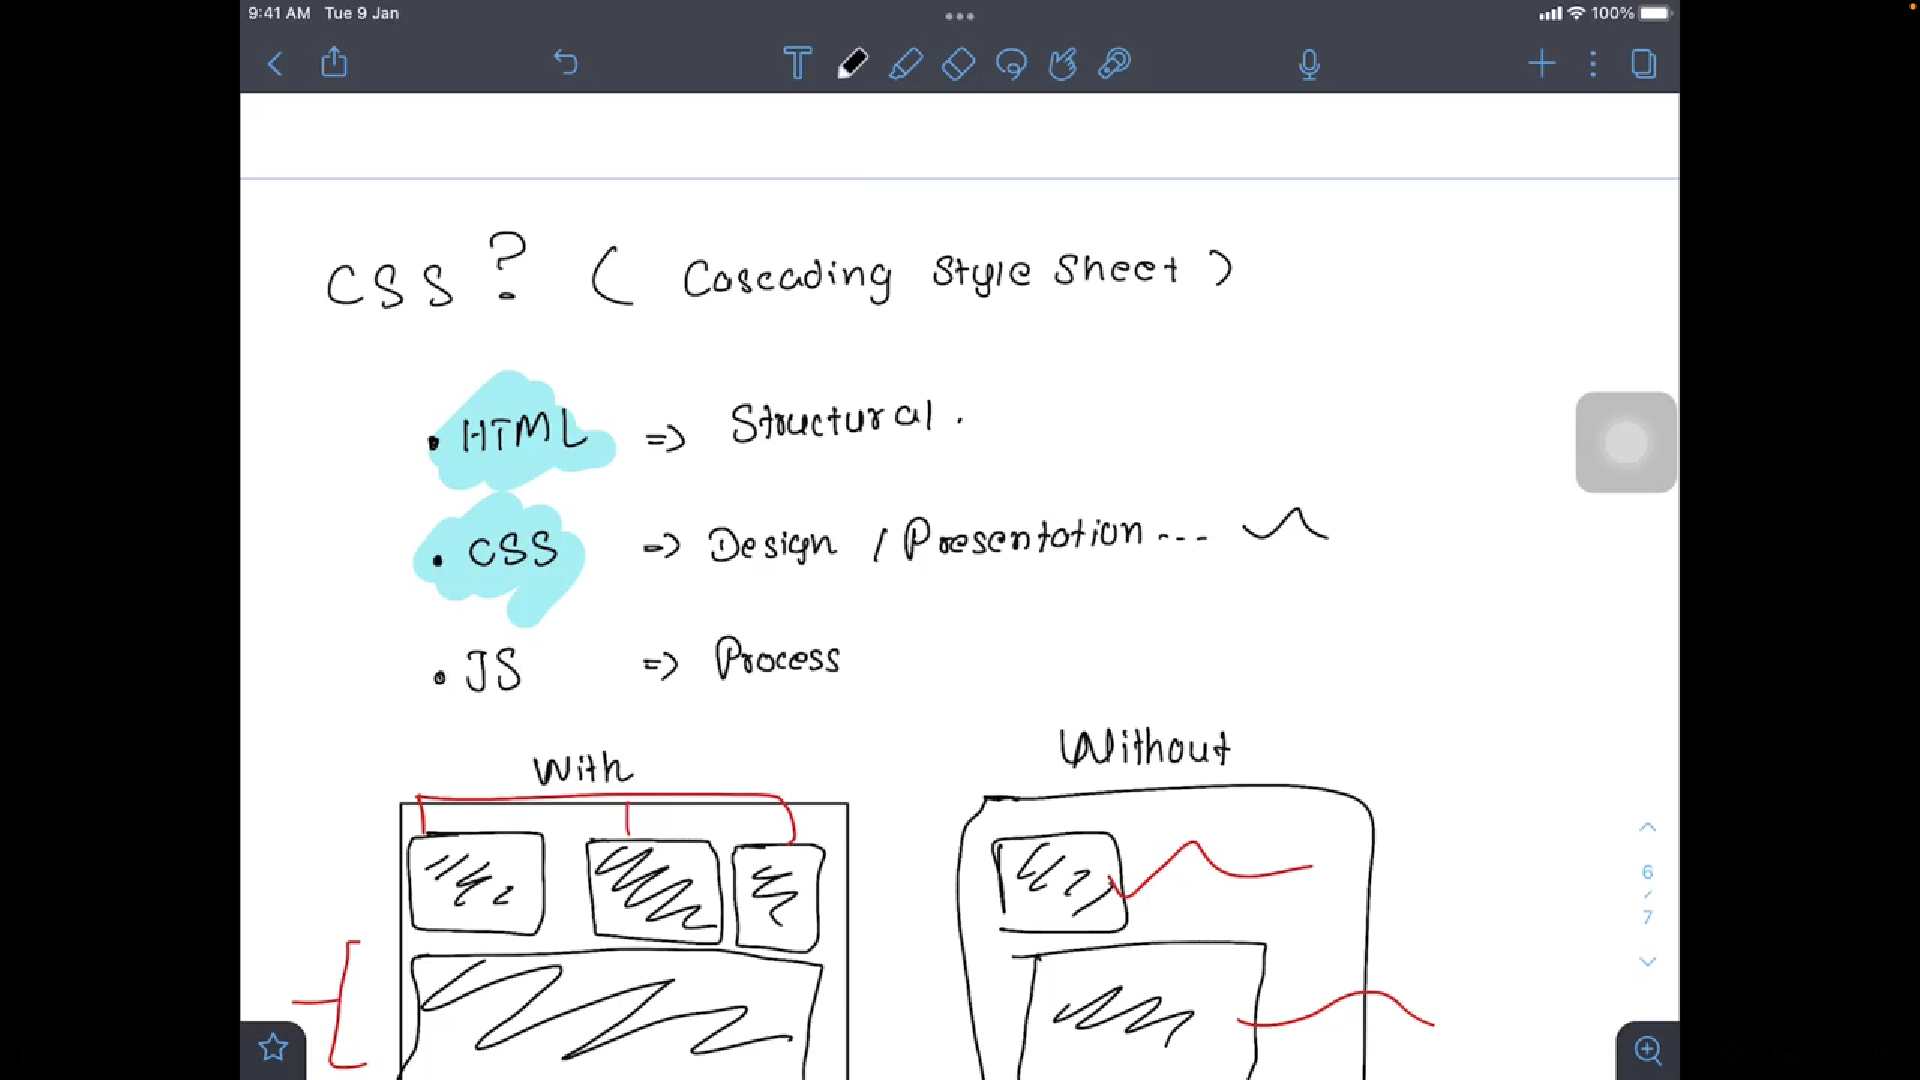 9:41 AM Tue 9 Jan
100%
CSS ? ( Cascading Style Sheet )
• HTML => Structural .
• CSS => Design / Presentation ...
• JS => Process
With
Without
6
/
7